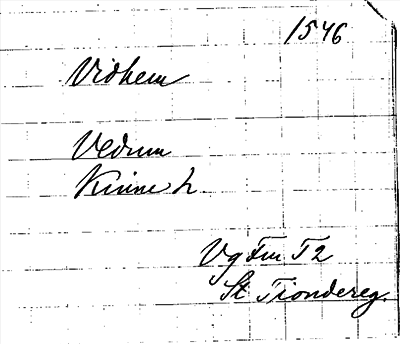 1546
Vidhem
Vedum
Kinne h
Vg Fm T2
St Tiondereg.